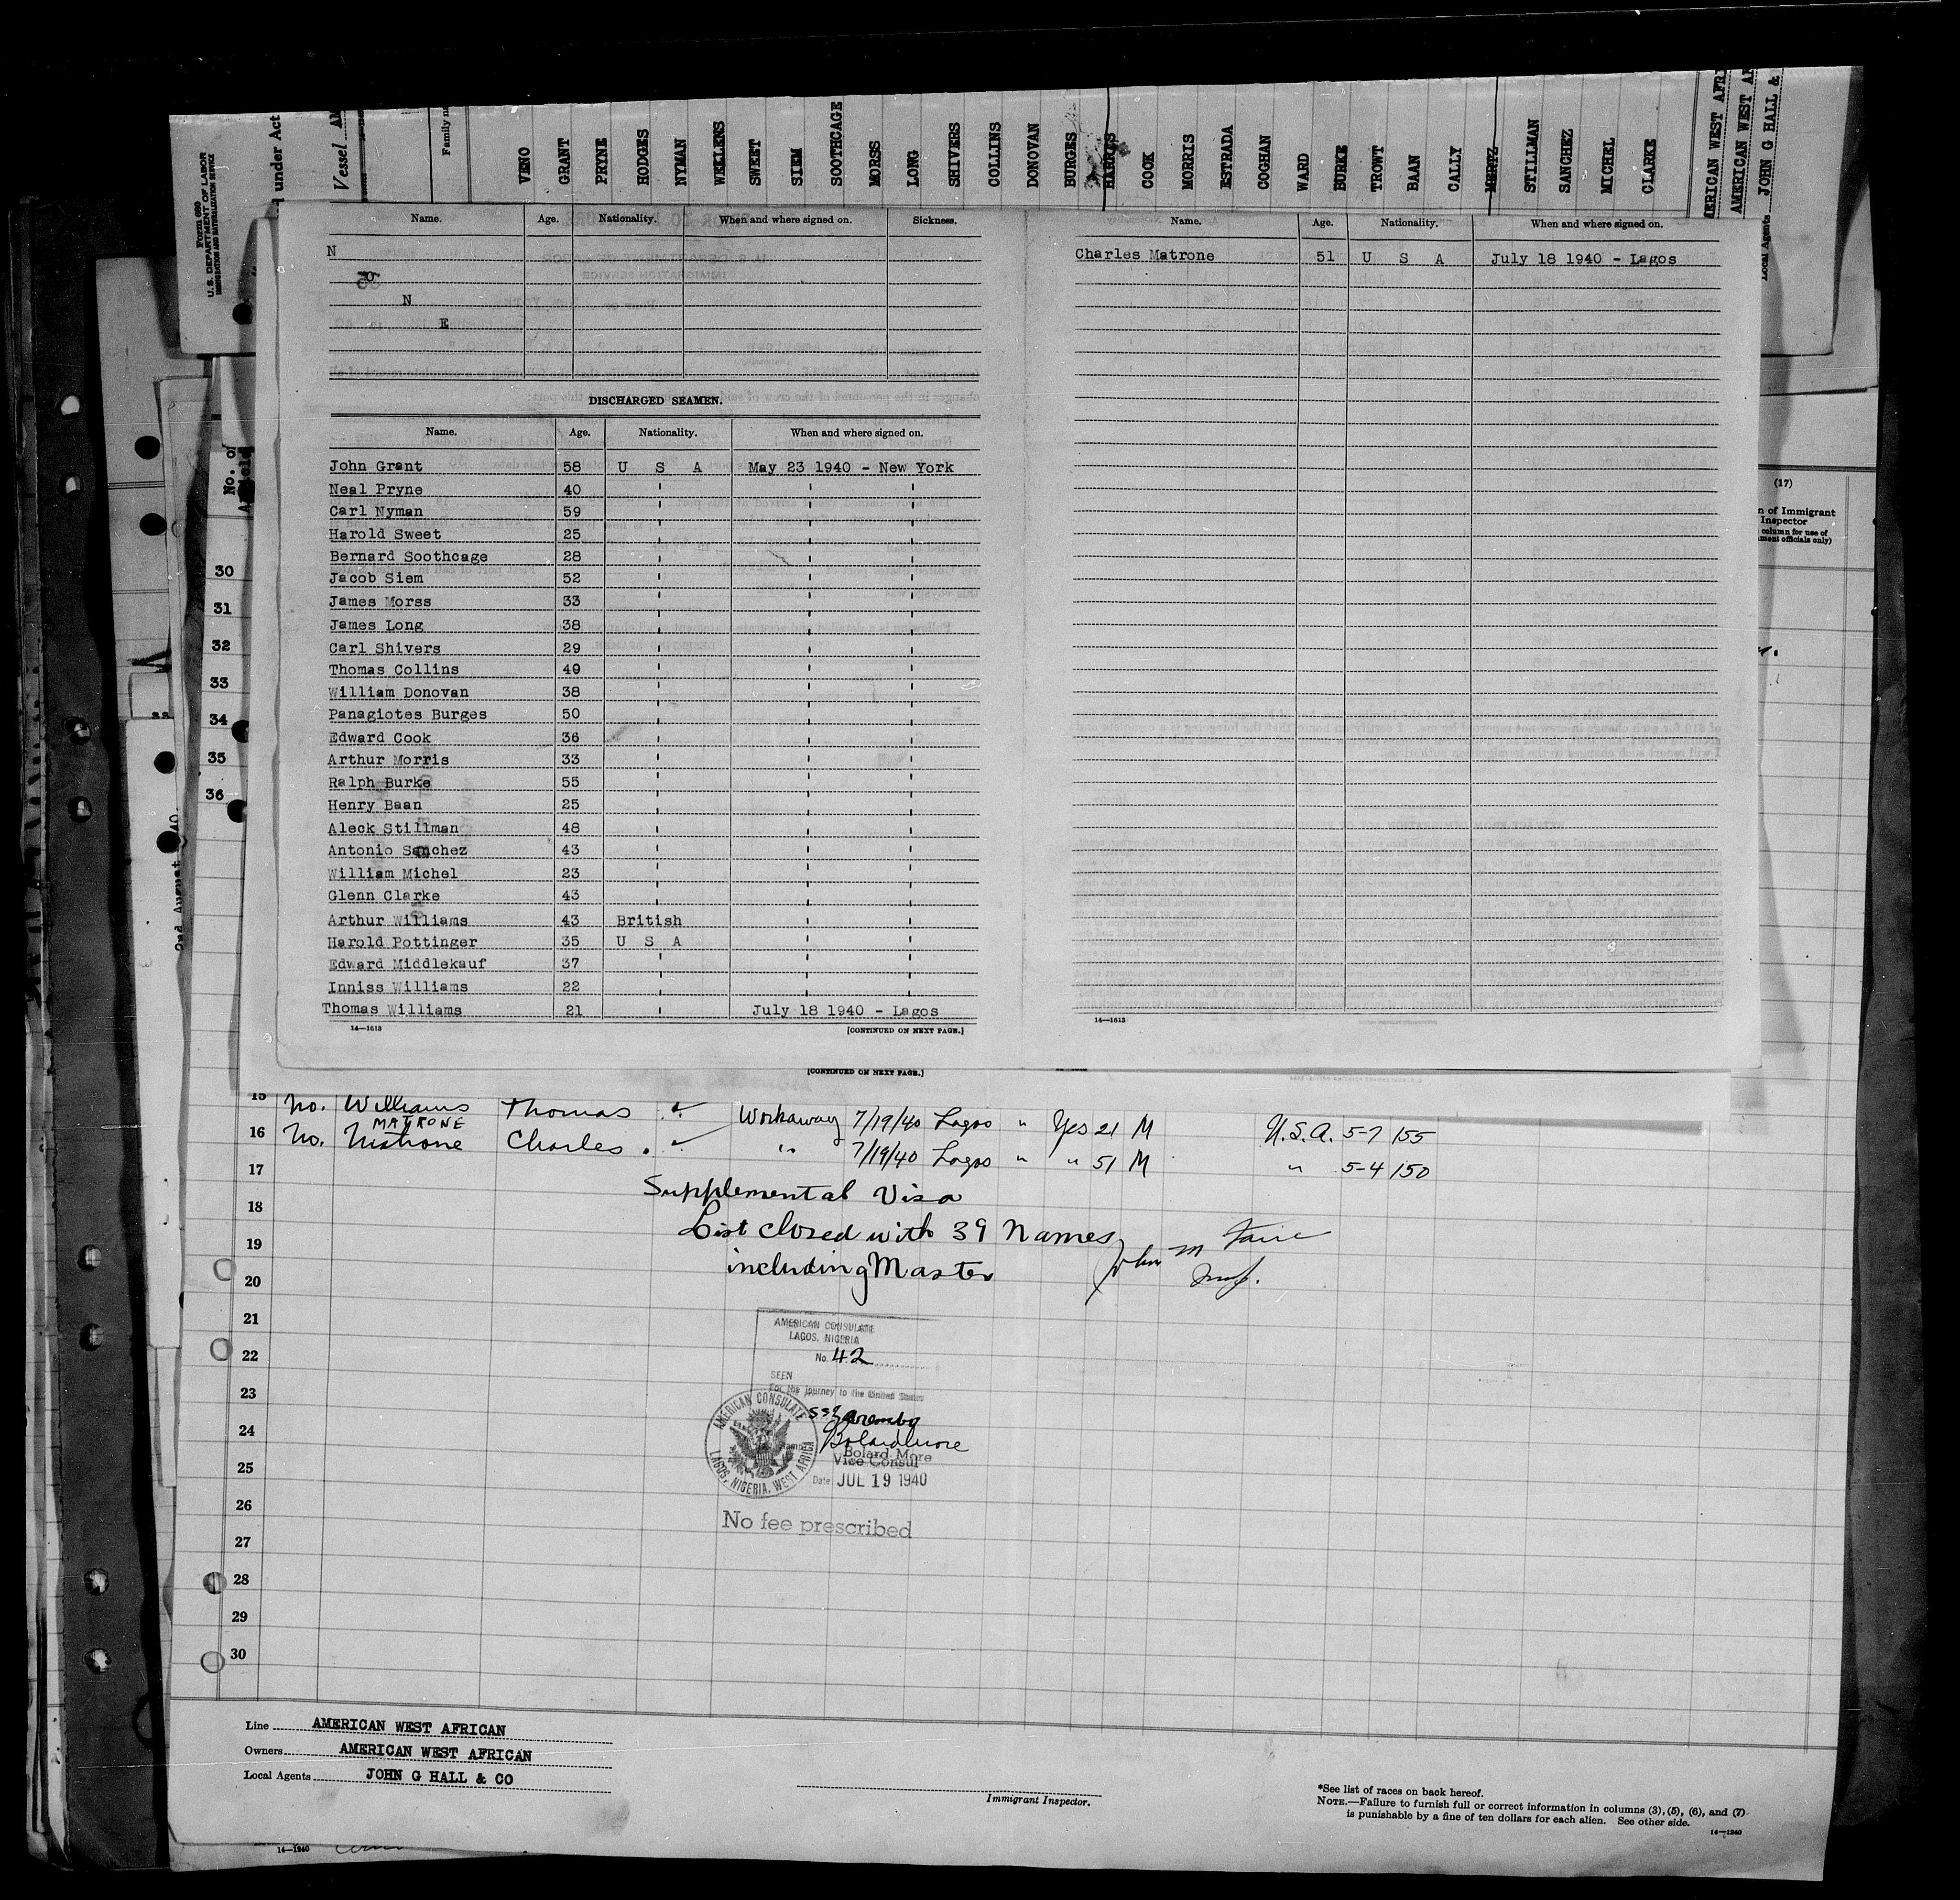 Form 680
U. S. DEPARTMENT OF LABOR
IMMIGRATION AND NATURALIZATION SERVICE
under Act
Vessel
Family n
VENO
GRANT
PRYNE
HODGES
NYMAN
WELLENS
SWEET
SIEM
SOOTHCAGE
MORSS
LONG
SHIVERS
COLLINS
DONOVAN
BURGES
HARRIS
COOK
MORRIS
ESTRADA
COGHAN
WARD
BURKE
TROWT
BAAN
CALLY
MERTZ
STILLMAN
SANCHEZ
MICHEL
CLARKE
MERICAN WEST AFRI
AMERICAN WEST A
Local Agents JOHN G HALL &
Name. Age. Nationality. When and where signed on. Sickness.
N
O
N
E
DISCHARGED SEAMEN.
Name. Age. Nationality. When and where signed on.
John Grant 58 U S A May 23 1940 - New York
Neal Pryne 40 ' ' '
Carl Nyman 59 ' ' '
Harold Sweet 25 ' ' '
Bernard Soothcage 28 ' ' '
Jacob Siem 52 ' ' '
James Morss 33 ' ' '
James Long 38 ' ' '
Carl Shivers 29 ' ' '
Thomas Collins 49 ' ' '
William Donovan 38 ' ' '
Panagiotes Burges 50 ' ' '
Edward Cook 36 ' ' '
Arthur Morris 33 ' ' '
Ralph Burke 55 ' ' '
Henry Baan 25 ' ' '
Aleck Stillman 48 ' ' '
Antonio Sanchez 43 ' ' '
William Michel 23 ' ' '
Glenn Clarke 43 ' ' '
Arthur Williams 43 British ' '
Harold Pottinger 35 U S A ' '
Edward Middlekauf 37 ' ' '
Inniss Williams 22 ' ' '
Thomas Williams 21 ' July 18 1940 - Lagos
14—1613 [CONTINUED ON NEXT PAGE.]
Name. Age. Nationality. When and where signed on.
Charles Matrone 51 U S A July 18 1940 - Lagos
14—1613
(17)
n of Immigrant
Inspector
column for use of
ment officials only)
No. o
30
31
32
33
34
35
36
2nd August
[CONTINUED ON NEXT PAGE.]
15 No. Williams Thomas Workaway 7/19/40 Lagos " Yes 21 M U.S.A. 5-7 155
MATRONE
16 No. Matrone Charles " 7/19/40 Lagos " " 51 M " 5-4 150
17
Supplemental Visa
18
List closed with 39 Names
19
including Master
John M
20
21
AMERICAN CONSULATE
LAGOS, NIGERIA
22
No. 42
SEEN
23
For the journey to the United States
AMERICAN CONSULATE
LAGOS, NIGERIA, WEST AFRICA
24
Bolard More
Vice Consul
25
Date JUL 19 1940
26
No fee prescribed
27
28
29
30
Line AMERICAN WEST AFRICAN
Owners AMERICAN WEST AFRICAN
Local Agents JOHN G HALL & CO
Immigrant Inspector.
*See list of races on back hereof.
NOTE.—Failure to furnish full or correct information in columns (3), (5), (6), and (7)
is punishable by a fine of ten dollars for each alien. See other side.
14—1240
14—1240